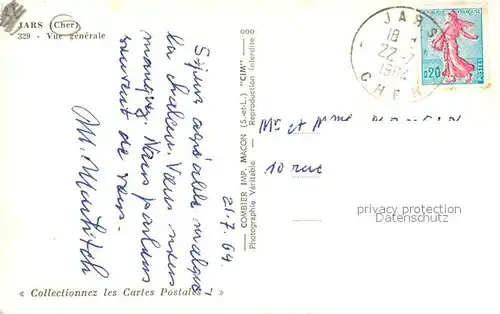 JARS (Cher)
329 - Vue générale
Séjour agréable malgré
la chaleur. Vous nous
manquez. Nous parlons
souvent de vous.
21.7.64.
« Collectionnez les Cartes Postales »
COMBIER IMP. MACON (S.-et-L.) "CIM"
Photographie Véritable - Reproduction Interdite
JARS
18 -
22 - 7
CHER
REPUBLIQUE FRANÇAISE
0,20
POSTES
Mr et Mme
10 rue
privacy protection
Datenschutz